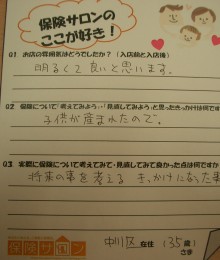 保険サロンの
ここが好き！
Q1 お店の雰囲気はどうでしたか？（入店前と入店後）
明るくて良いと思います。
Q2 保険について「考えてみよう・」「見直してみよう」と思ったきっかけは何です
子供が産まれたので。
Q3 実際に保険について考えてみて・見直してみて良かった点は何ですか
将来の事を考える きっかけになった事
保険サロン
中川区 在住 35歳